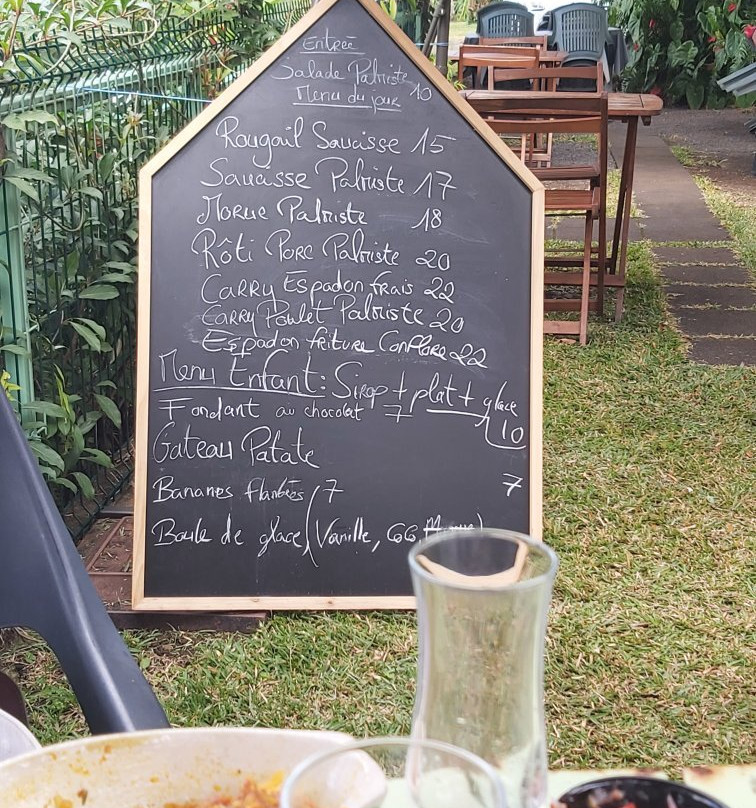 Entrée
Salade Palmiste 10
Menu du jour
Rougail Saucisse 15
Saucisse Palmiste 17
Morue Palmiste 18
Rôti Porc Palmiste 20
Carry Espadon frais 22
Carry Poulet Palmiste 20
Espadon friture 22
Menu Enfant: Sirop + plat + glace
Fondant au chocolat 7 10
Gateau Patate
Bananes flambées 7 7
Boule de glace (Vanille,